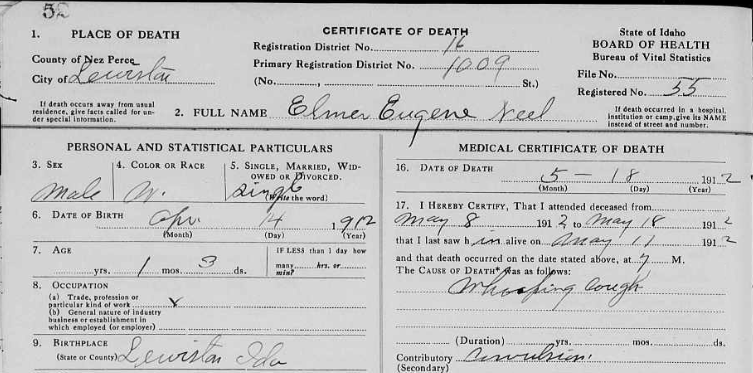 52
1. PLACE OF DEATH
CERTIFICATE OF DEATH
State of Idaho
BOARD OF HEALTH
Bureau of Vital Statistics
County of Nez Perce
City of Lewiston
Registration District No. 16
Primary Registration District No. 1009
(No. , St.)
File No.
Registered No. 55
If death occurs away from usual
residence, give facts called for un-
der special information.
2. FULL NAME Elmer Eugene Neel
If death occurred in a hospital,
institution or camp, give its NAME
instead of street and number.
PERSONAL AND STATISTICAL PARTICULARS
3. SEX Male
4. COLOR OR RACE W.
5. SINGLE, MARRIED, WID-
OWED OR DIVORCED.
Single
(Write the word)
6. DATE OF BIRTH Apr. 14 1912
(Month) (Day) (Year)
7. AGE
yrs. 1 mos. 3 ds.
IF LESS than 1 day how
many hrs. or
min?
8. OCCUPATION
(a) Trade, profession or
particular kind of work
(b) General nature of industry
business or establishment in
which employed (or employer)
9. BIRTHPLACE
(State or County) Lewiston Ida
MEDICAL CERTIFICATE OF DEATH
16. DATE OF DEATH 5 - 18 1912
(Month) (Day) (Year)
17. I HEREBY CERTIFY, That I attended deceased from
May 8 1912, to May 18 1912
that I last saw him alive on May 17 1912
and that death occurred on the date stated above, at 7 M.
The CAUSE OF DEATH* was as follows:
Whooping Cough
(Duration) yrs. mos. ds.
Contributory Convulsions
(Secondary)